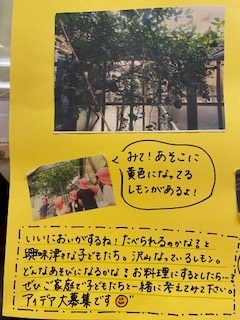 みて!あそこに
黄色になってる
レモンがあるよ!
いいにおいがするね!たべられるのかな?と
興味津々な子どもたち。沢山なっているレモン。
どんなあそびになるかな?お料理にするとしたら…?
ぜひご家庭で子どもたちと一緒に考えてみて下さい。
アイデア大募集です